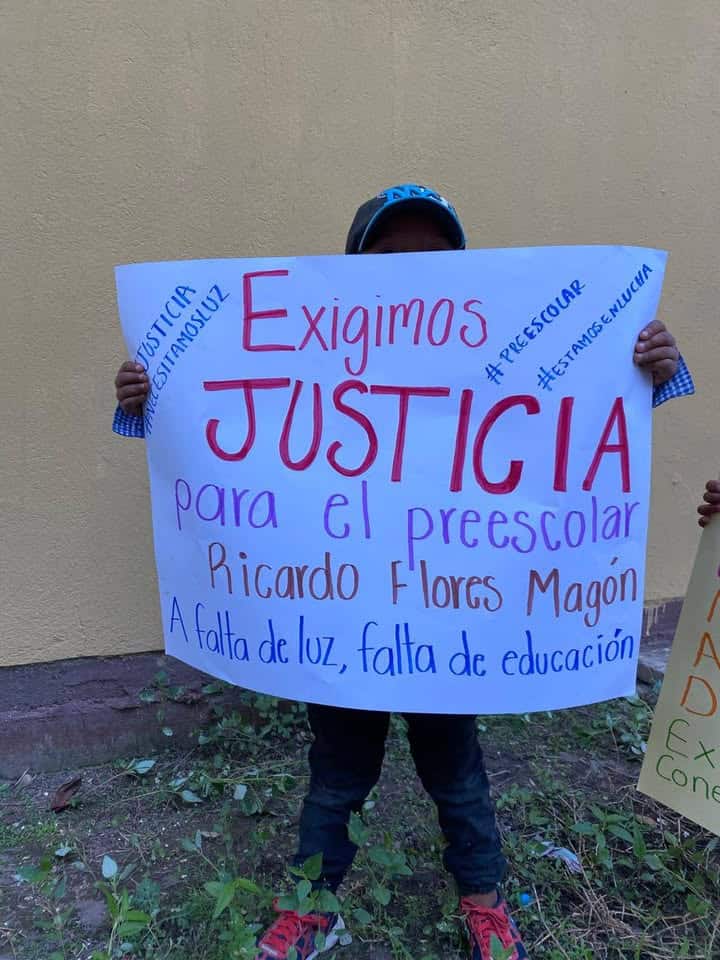 JUSTICIA
#NECESITAMOSLUZ
Exigimos
#PREESCOLAR
#ESTAMOSENLUCHA
JUSTICIA
para el preescolar
Ricardo Flores Magón
A falta de luz, falta de educación